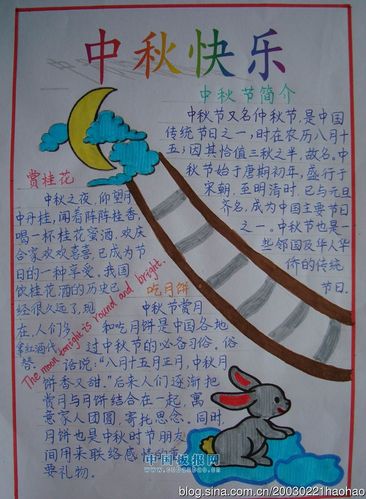 中秋快乐
中秋节简介
中秋节又名仲秋节,是中国
传统节日之一,时在农历八月十
五;因其恰值三秋之半,故名。中
秋节始于唐朝初年,盛行于
宋朝,至明清时,已与元旦
齐名,成为中国主要节日
之一。中秋节也是一
些邻国及华人华
侨的传统
节日。
赏桂花
中秋之夜,仰望月
中丹桂,闻着阵阵桂香,
喝一杯桂花蜜酒,欢庆
合家欢欢喜喜,已成为节
日的一种享受。我国
饮桂花酒的历史已
经很久远了,现
在,人们多
拿红酒代
替。
The moon tonight is round and bright.
吃月饼
中秋节赏月
和吃月饼是中国各地
过中秋节的必备习俗。俗
话说:“八月十五月正,中秋月
饼香又甜。”后来人们逐渐把
赏月与月饼结合在一起,寓
意家人团圆,寄托思念。同时,
月饼也是中秋时节朋友
间用来联络感情
要礼物。
中国板报网
blog.sina.com.cn/20030221haohao